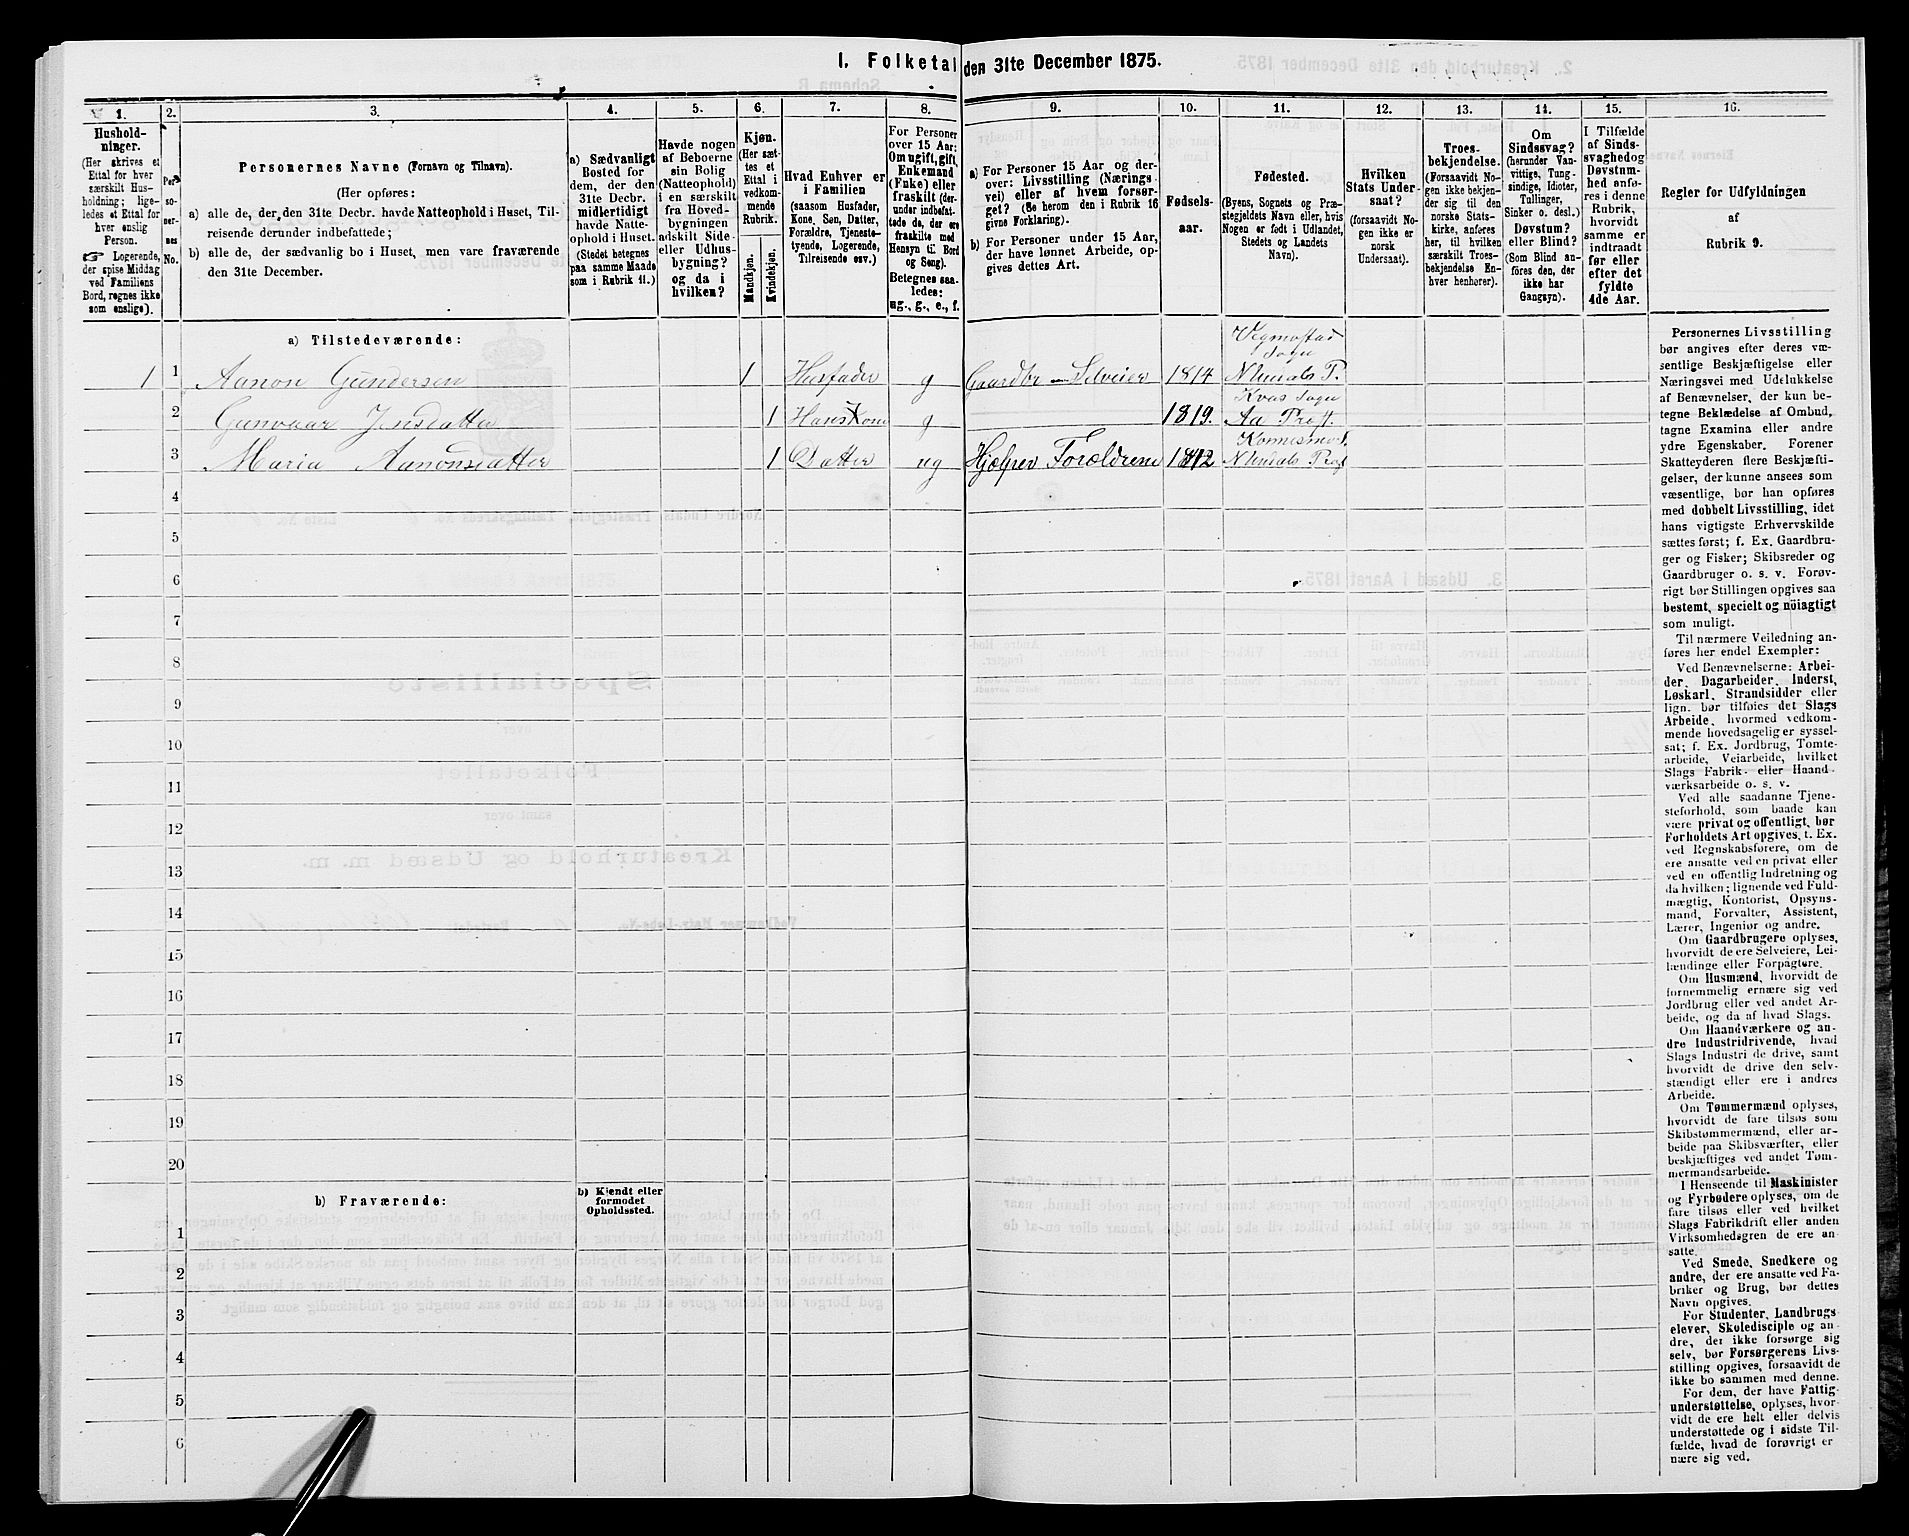 I. Folketal den 31te December 1875.
1. 2. 3. 4. 5. 6. 7. 8. 9. 10. 11. 12. 13. 14. 15. 16.
Hushold-
ninger.
(Her skrives et
Ettal for hver
særskilt Hus-
holdning; lige-
ledes et Ettal for
hver enslig
Person.
☞ Logerende,
der spise Middag
ved Familiens
Bord, regnes ikke
som enslige).
Per
so-
ner-
nes
No.
Personernes Navne (Fornavn og Tilnavn).
(Her opføres:
a) alle de, der den 31te Decbr. havde Natteophold i Huset, Til-
reisende derunder indbefattede;
b) alle de, der sædvanlig bo i Huset, men vare fraværende
den 31te December.
a) Sædvanligt
Bosted for
dem, der den
31te Decbr.
midlertidigt
havde Natte-
ophold i Huset.
(Stedet betegnes
paa samme Maade
som i Rubrik 11.)
Havde nogen
af Beboerne
sin Bolig
(Natteophold)
i en særskilt
fra Hoved-
bygningen
adskilt Side-
eller Udhus-
bygning?
og da i
hvilken?
Kjøn.
(Her sæt-
tes et
Ettal i
vedkom-
mende
Rubrik.
Mandkjøn.
Kvindekjøn.
Hvad Enhver er
i Familien
(saasom Husfader,
Kone, Søn, Datter,
Forældre, Tjeneste-
tyende, Logerende,
Tilreisende osv.)
For Personer
over 15 Aar:
Om ugift, gift,
Enkemand
(Enke) eller
fraskilt (der-
under indbefat-
tede de, der ere
fraskilte med
Hensyn til Bord
og Seng).
Betegnes saa-
ledes:
ug., g., e., f.
a) For Personer 15 Aar og der-
over: Livsstilling (Nærings-
vei) eller af hvem forsør-
get? (Se herom den i Rubrik 16
givne Forklaring).
b) For Personer under 15 Aar,
der have lønnet Arbeide, op-
gives dettes Art.
Fødsels-
aar.
Fødested.
(Byens, Sognets og Præ-
stegjeldets Navn eller, hvis
Nogen er født i Udlandet,
Stedets og Landets
Navn).
Hvilken
Stats Under-
saat?
(forsaavidt No-
gen ikke er
norsk
Undersaat).
Troes-
bekjendelse.
(Forsaavidt No-
gen ikke bekjen-
der sig til den
norske Stats-
kirke, anføres
her, til hvilken
særskilt Troes-
bekjendelse En-
hver henhører).
Om
Sindssvag?
(herunder Van-
vittige, Tung-
sindige, Idioter,
Tullinger,
Sinker o. desl.)
Døvstum?
eller Blind?
(Som Blind an-
føres den, der
ikke har
Gangsyn).
I Tilfælde
af Sinds-
svaghed og
Døvstum-
hed anfø-
res i denne
Rubrik,
hvorvidt
samme er
indtraadt
før eller
efter det
fyldte
4de Aar.
Regler for Udfyldningen
af
Rubrik 9.
a) Tilstedeværende:
Vegmostad
Sogn
1 1 Aanon Gundersen 1 Husfader g Gaardbr Selveier 1814 N Undals P.
Kvas Sogn
2 Gunvaar Jensdatter 1 Hans Kone g 1819. Aa Præst.
3 Maria Aanonsdatter 1 Datter ug Hjælper Forældrene N Undals
4
5
6
7
8
9
10
11
12
13
14
15
16
17
18
19
20
b) Fraværende:
b) Kjendt eller
formodet
Opholdssted.
1
2
3
4
5
6
Personernes Livsstilling
bør angives efter deres væ-
sentlige Beskjæftigelse eller
Næringsvei med Udelukkelse
af Benævnelser, der kun be-
tegne Beklædelse af Ombud,
tagne Examina eller andre
ydre Egenskaber. Forener
Skatteyderen flere Beskjæfti-
gelser, der kunne ansees som
væsentlige, bør han opføres
med dobbelt Livsstilling, idet
hans vigtigste Erhvervskilde
sættes først; f. Ex. Gaardbru-
ger og Fisker; Skibsreder og
Gaardbruger o. s. v. Forøv-
rigt bør Stillingen opgives saa
bestemt, specielt og nøiagtigt
som muligt.
Til nærmere Veiledning an-
føres her endel Exempler:
Ved Benævnelserne: Arbei-
der, Dagarbeider, Inderst,
Løskarl, Strandsidder eller
lign. bør tilføies det Slags
Arbeide, hvormed vedkom-
mende hovedsagelig er syssel-
sat; f. Ex. Jordbrug, Tomte-
arbeide, Veiarbeide, hvilket
Slags Fabrik- eller Haand-
værksarbeide o. s. v.
Ved alle saadanne Tjene-
steforhold, som baade kan
være privat og offentligt, bør
Forholdets Art opgives, t. Ex.
ved Regnskabsførere, om de
ere ansatte ved en privat eller
ved en offentlig Indretning og
da hvilken; lignende ved Fuld-
mægtig, Kontorist, Opsyns-
mand, Forvalter, Assistent,
Lærer, Ingeniør og andre.
Om Gaardbrugere oplyses,
hvorvidt de ere Selveiere, Lei-
lændinge eller Forpagtere.
Om Husmænd, hvorvidt de
fornemmelig ernære sig ved
Jordbrug eller ved andet Ar-
beide, og da af hvad Slags.
Om Haandværkere og an-
dre Industridrivende, hvad
Slags Industri de drive, samt
hvorvidt de drive den selv-
stændigt eller ere i andres
Arbeide.
Om Tømmermænd oplyses,
hvorvidt de fare tilsøs som
Skibstømmermænd, eller ar-
beide paa Skibsværfter, eller
beskjæftiges ved andet Tøm-
mermandsarbeide.
I Henseende til Maskinister
og Fyrbødere oplyses, om de
fare tilsøs eller ved hvilket
Slags Fabrikdrift eller anden
Virksomhedsgren de ere an-
satte.
Ved Smede, Snedkere og
andre, der ere ansatte ved Fa-
briker og Brug, bør dettes
Navn opgives.
For Studenter, Landbrugs-
elever, Skoledisciple og an-
dre, der ikke forsørge sig
selv, bør Forsørgerens Livs-
stilling opgives, forsaavidt de
ikke bo sammen med denne.
For dem, der have Fattig-
understøttelse, oplyses, hvor-
vidt de ere helt eller delvis
understøttede og i sidste Til-
fælde, hvad de forøvrigt er-
nære sig ved.